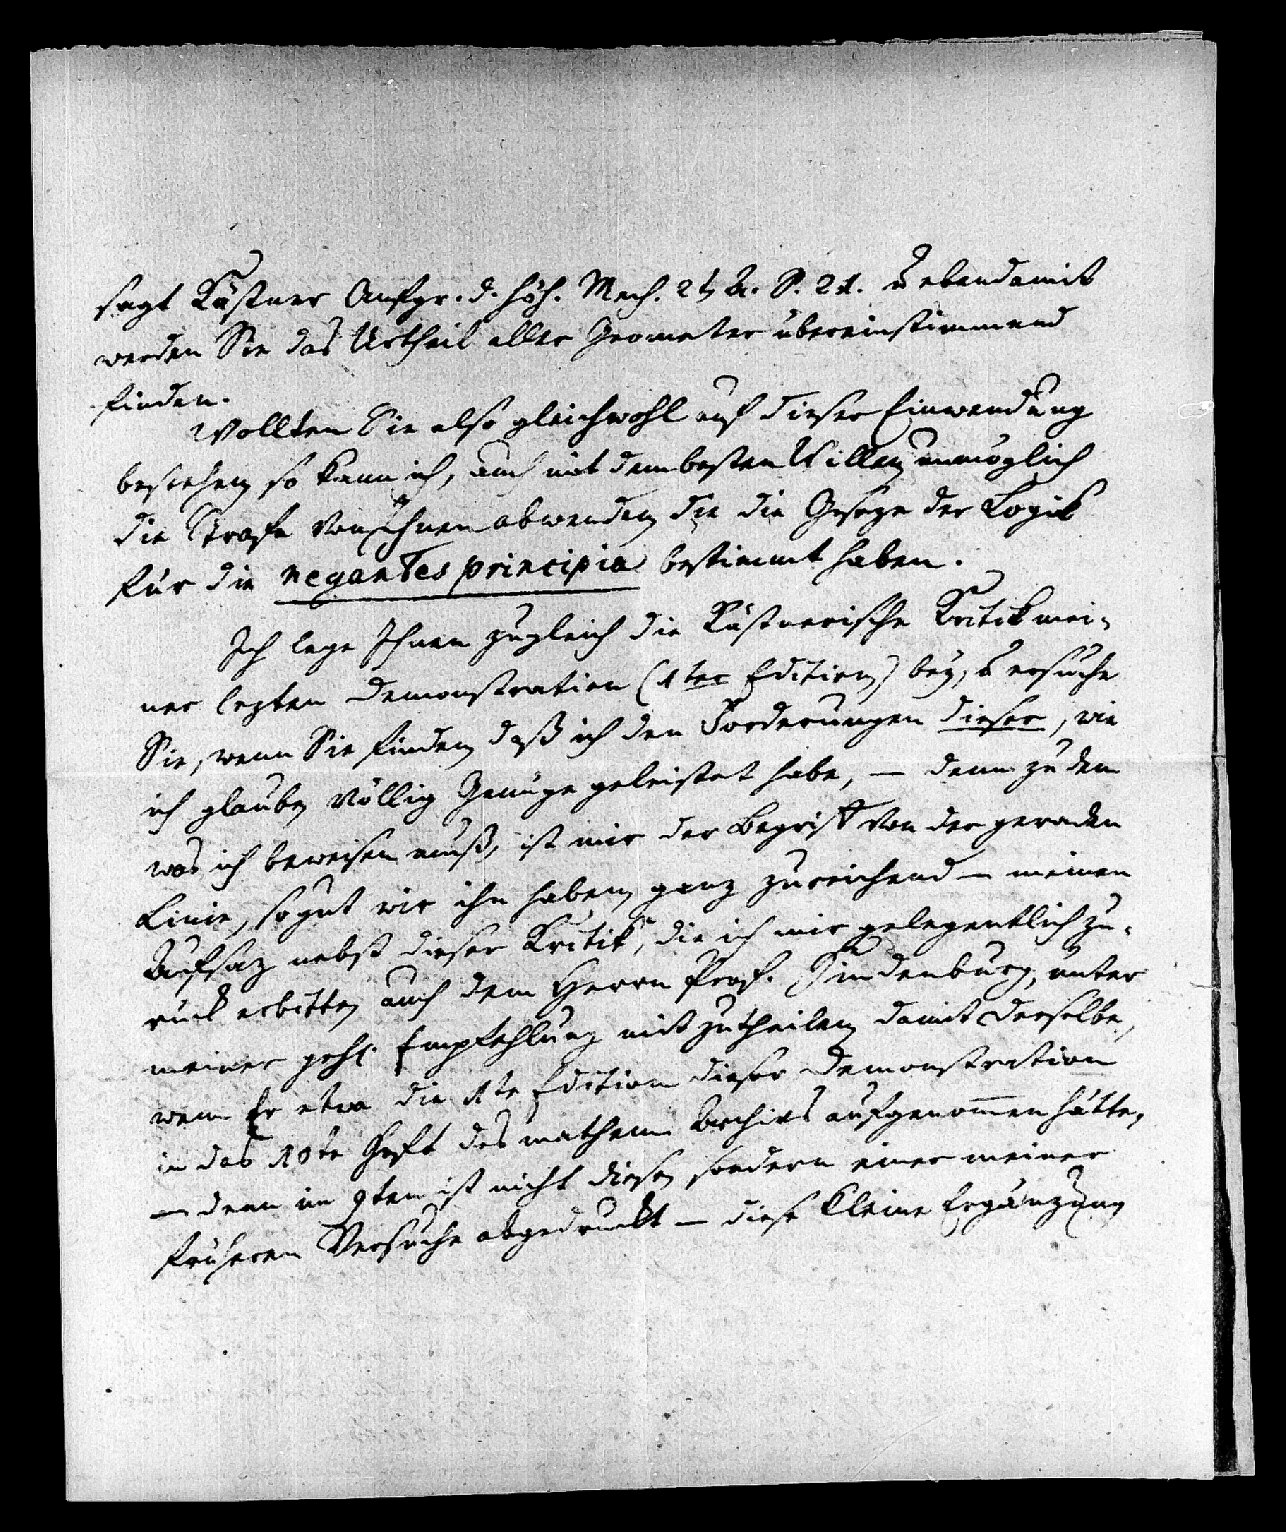 sagt Kästner Anfgr. d. höh. Mech. 2t A. S. 21. u ebendamit
werden Sie das Urtheil aller Geometer übereinstimmend
finden.
Wollten Sie also gleichwohl auf dieser Einwendung
bestehen so kann ich, auch mit dem besten Willen unmöglich
die Strafe von Ihnen abwenden die die Geseze der Logik
für die negantes principia bestimmt haben.
Ich lege Ihnen zugleich die Kästnerische Kritik mei-
ner lezten Demonstration (1ter Edition) bey, u ersuche
Sie, wenn Sie finden daß ich den Forderungen dieser, wie
ich glaube, völlig Genüge geleistet habe, — denn zu dem
was ich beweisen muß, ist mir der Begriff von der geraden
Linie, so gut wir ihn haben, ganz zureichend — meinen
Aufsaz nebst dieser Kritik, die ich mir gelegentlich zu-
rück erbitte, auch dem Herrn Prof. Hindenburg, unter
meiner geh. Empfehlung mit zutheilen damit derselbe,
wenn Er etwa die 1te Edition dieser Demonstration
in das 10te Heft des mathem Archivs aufgenommen hätte,
— denn im 9ten ist nicht diese, sondern einer meiner
früheren Versuche abgedruckt — diese kleine Ergänzung